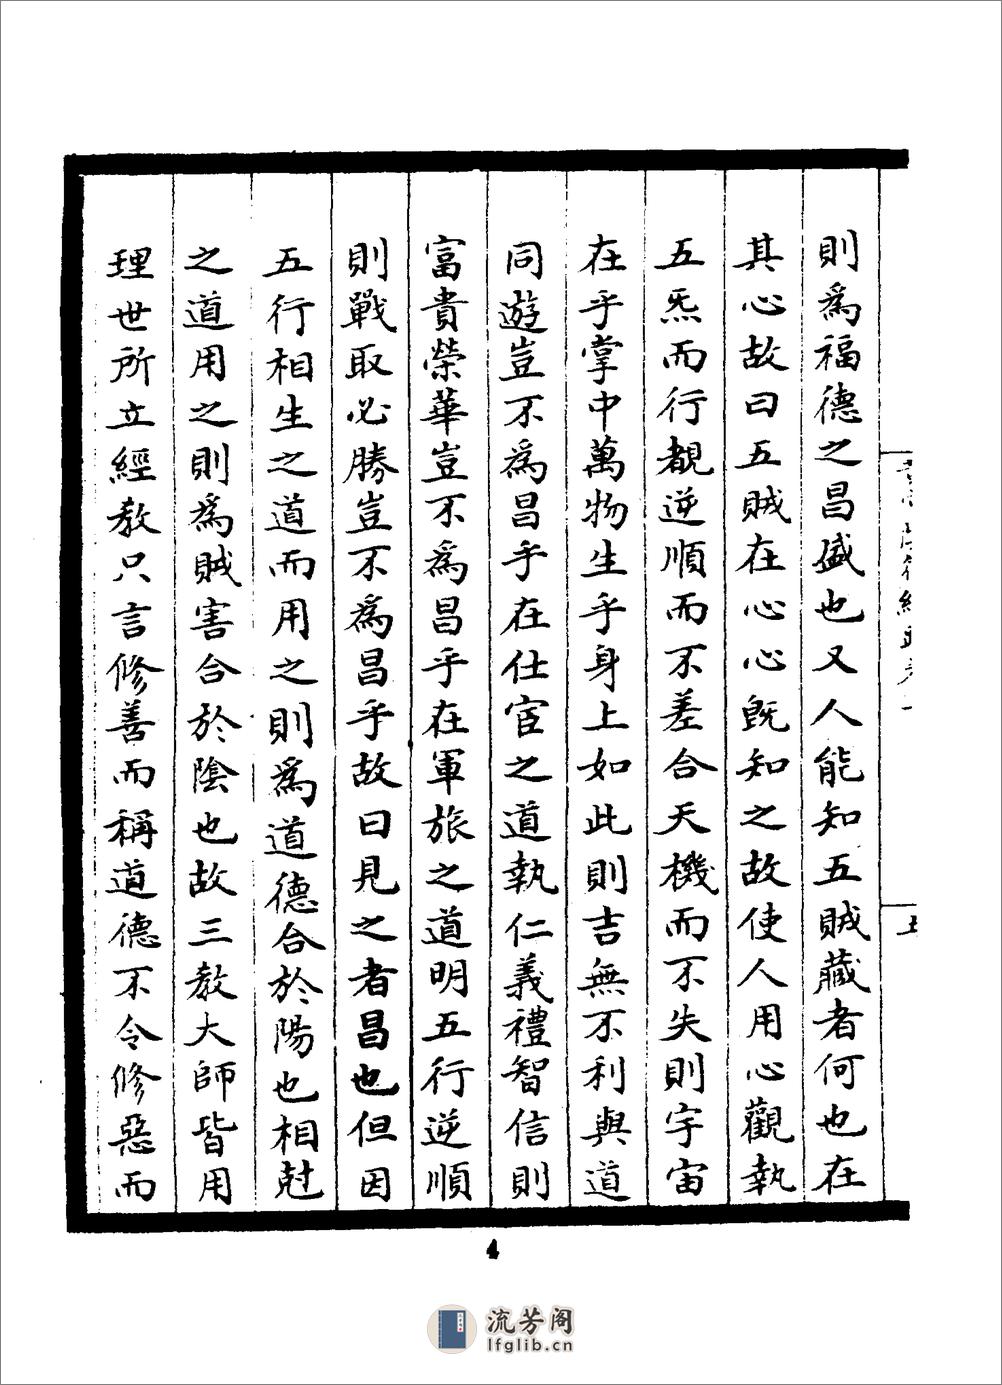 則爲福德之昌盛也又人能知五賊藏者何也在
其心故曰五賊在心心旣知之故使人用心觀執
五炁而行覩逆順而不差合天機而不失則宇宙
在乎掌中萬物生乎身上如此則吉無不利與道
同遊豈不爲昌乎在仕宦之道執仁義禮智信則
富貴榮華豈不爲昌乎在軍旅之道明五行逆順
則戰取必勝豈不爲昌乎故曰見之者昌也但因
五行相生之道而用之則爲道德合於陽也相尅
之道用之則爲賊害合於陰也故三教大師皆用
理世所立經教只言修善而稱道德不令修惡而
4
流芳阁
lfglib.cn